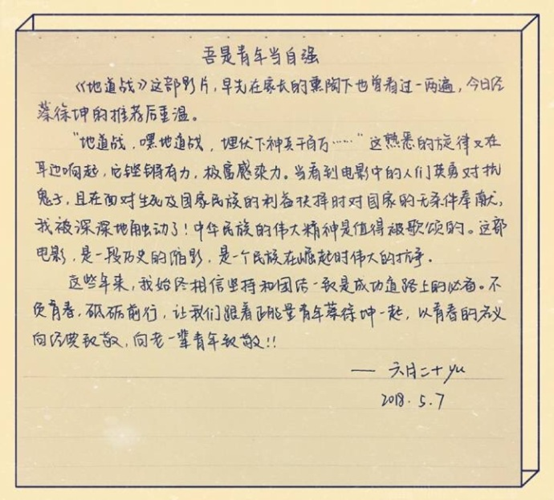 吾是青年当自强
《地道战》这部影片，早先在家长的熏陶下也曾看过一两遍，今日经
蔡徐坤的推荐后重温。
“地道战，嘿地道战，埋伏下神兵千百万……”这熟悉的旋律又在
耳边响起，它铿锵有力，极富感染力。当看到电影中的人们英勇对抗
鬼子，且在面对生死及国家民族的利益抉择时对国家的无条件奉献，
我被深深地触动了！中华民族的伟大精神是值得被歌颂的。这部
电影，是一段历史的缩影，是一个民族在崛起时伟大的抗争。
这些年来，我始终相信坚持和团结一致是成功道路上的必备。不
负青春，砥砺前行，让我们跟着正能量青年蔡徐坤一起，以青春的名义
向经典致敬，向老一辈青年致敬！！
—— 六月二十yu
2018.5.7